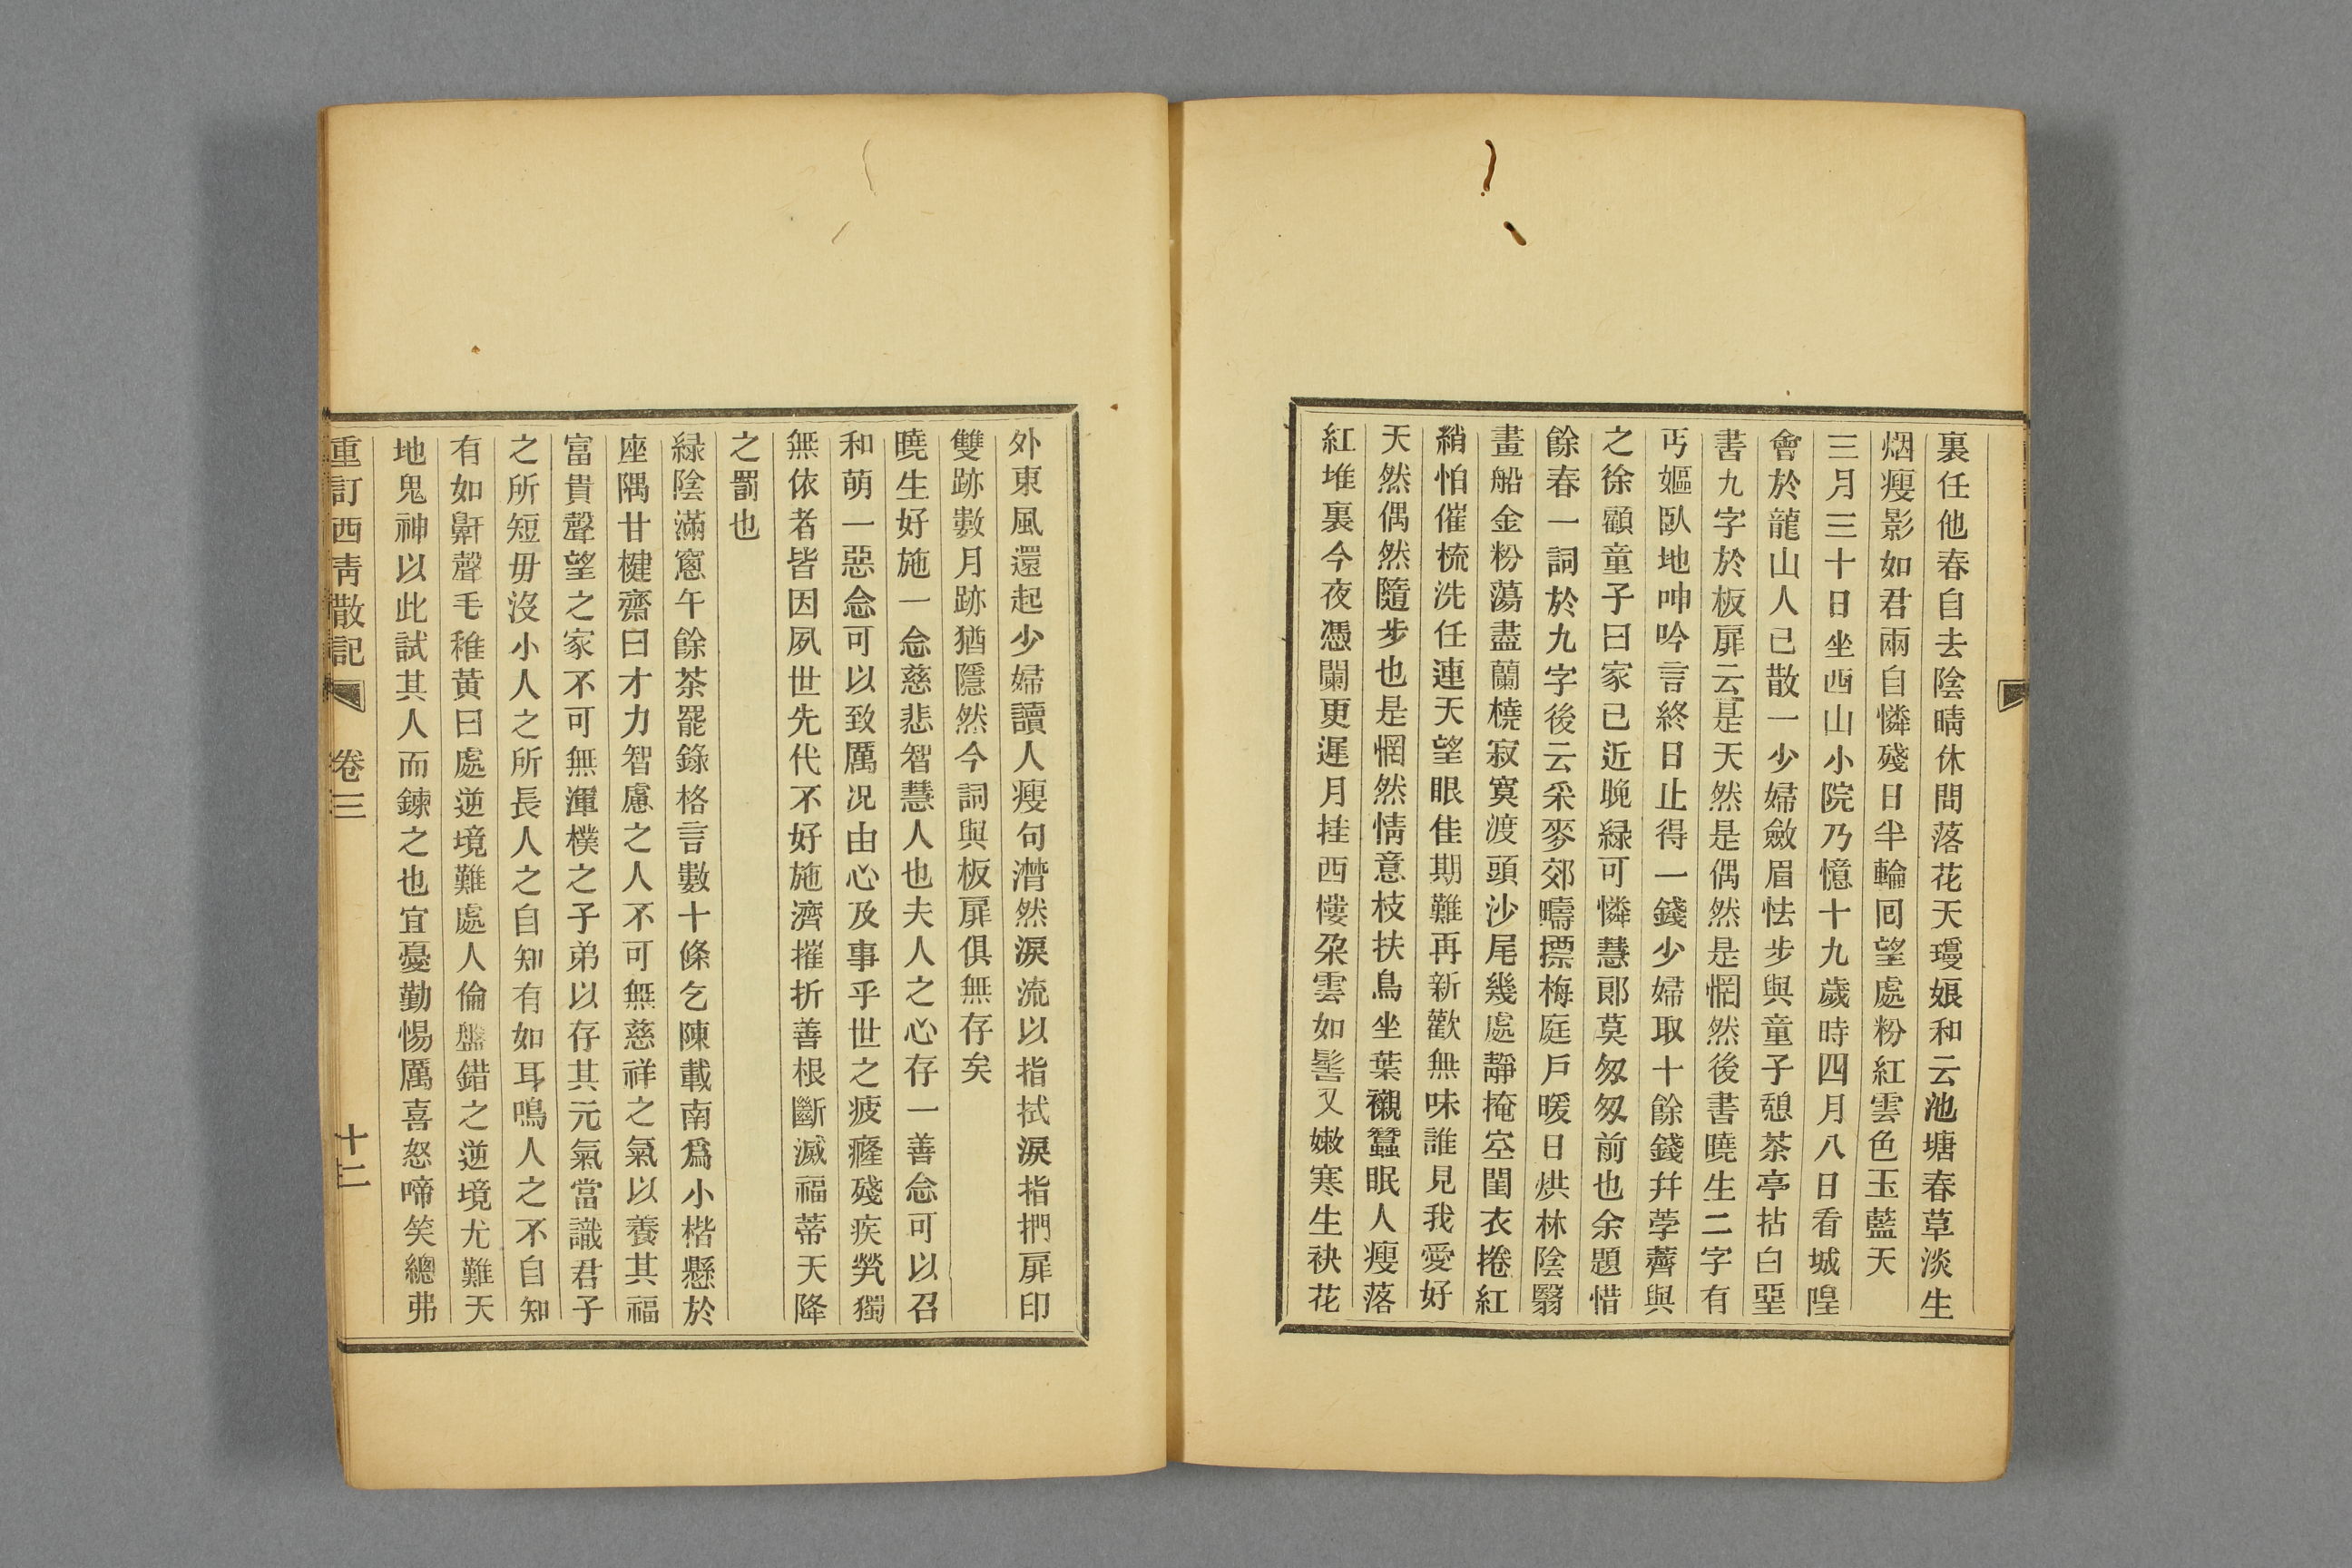 裏任他春自去陰晴休問落花天㼆娘和云池塘春草淡生
烟瘦影如君兩自憐殘日半輪囘望處粉紅雲色玉藍天
三月三十日坐西山小院乃憶十九歲時四月八日看城隍
會於龍山人已散一少婦斂眉怯步與童子憩茶亭拈白堊
書九字於板扉云是天然是偶然是惘然後書曉生二字有
丐嫗臥地呻吟言終日止得一錢少婦取十餘錢幷荸薺與
之徐顧童子曰家已近晚綠可憐慧郞莫匆匆前也余題惜
餘春一詞於九字後云采麥郊疇摽梅庭戶暖日烘林陰翳
畫船金粉蕩盡蘭橈寂寞渡頭沙尾幾處靜掩空閨衣捲紅
綃怕催梳洗任連天望眼佳期難再新歡無味誰見我愛好
天然偶然隨步也是惘然情意枝扶鳥坐葉襯蠶眠人瘦落
紅堆裏今夜憑闌更遲月挂西樓朶雲如髻又嫩寒生袂花
外東風還起少婦讀人瘦句潸然淚流以指拭淚指捫扉印
雙跡數月跡猶隱然今詞與板扉俱無存矣
曉生好施一念慈悲智慧人也夫人之心存一善念可以召
和萌一惡念可以致厲况由心及事乎世之疲癃殘疾煢獨
無依者皆因夙世先代不好施濟摧折善根斷滅福蒂天降
之罰也
綠陰滿窻午餘茶罷錄格言數十條乞陳載南爲小楷懸於
座隅甘楗齋曰才力智慮之人不可無慈祥之氣以養其福
富貴聲望之家不可無渾樸之子弟以存其元氣當識君子
之所短毋沒小人之所長人之自知有如耳鳴人之不自知
有如鼾聲毛稚黃曰處逆境難處人倫盤錯之逆境尤難天
地鬼神以此試其人而鍊之也宜憂勤惕厲喜怒啼笑總弗
重訂西青散記 卷三 十二